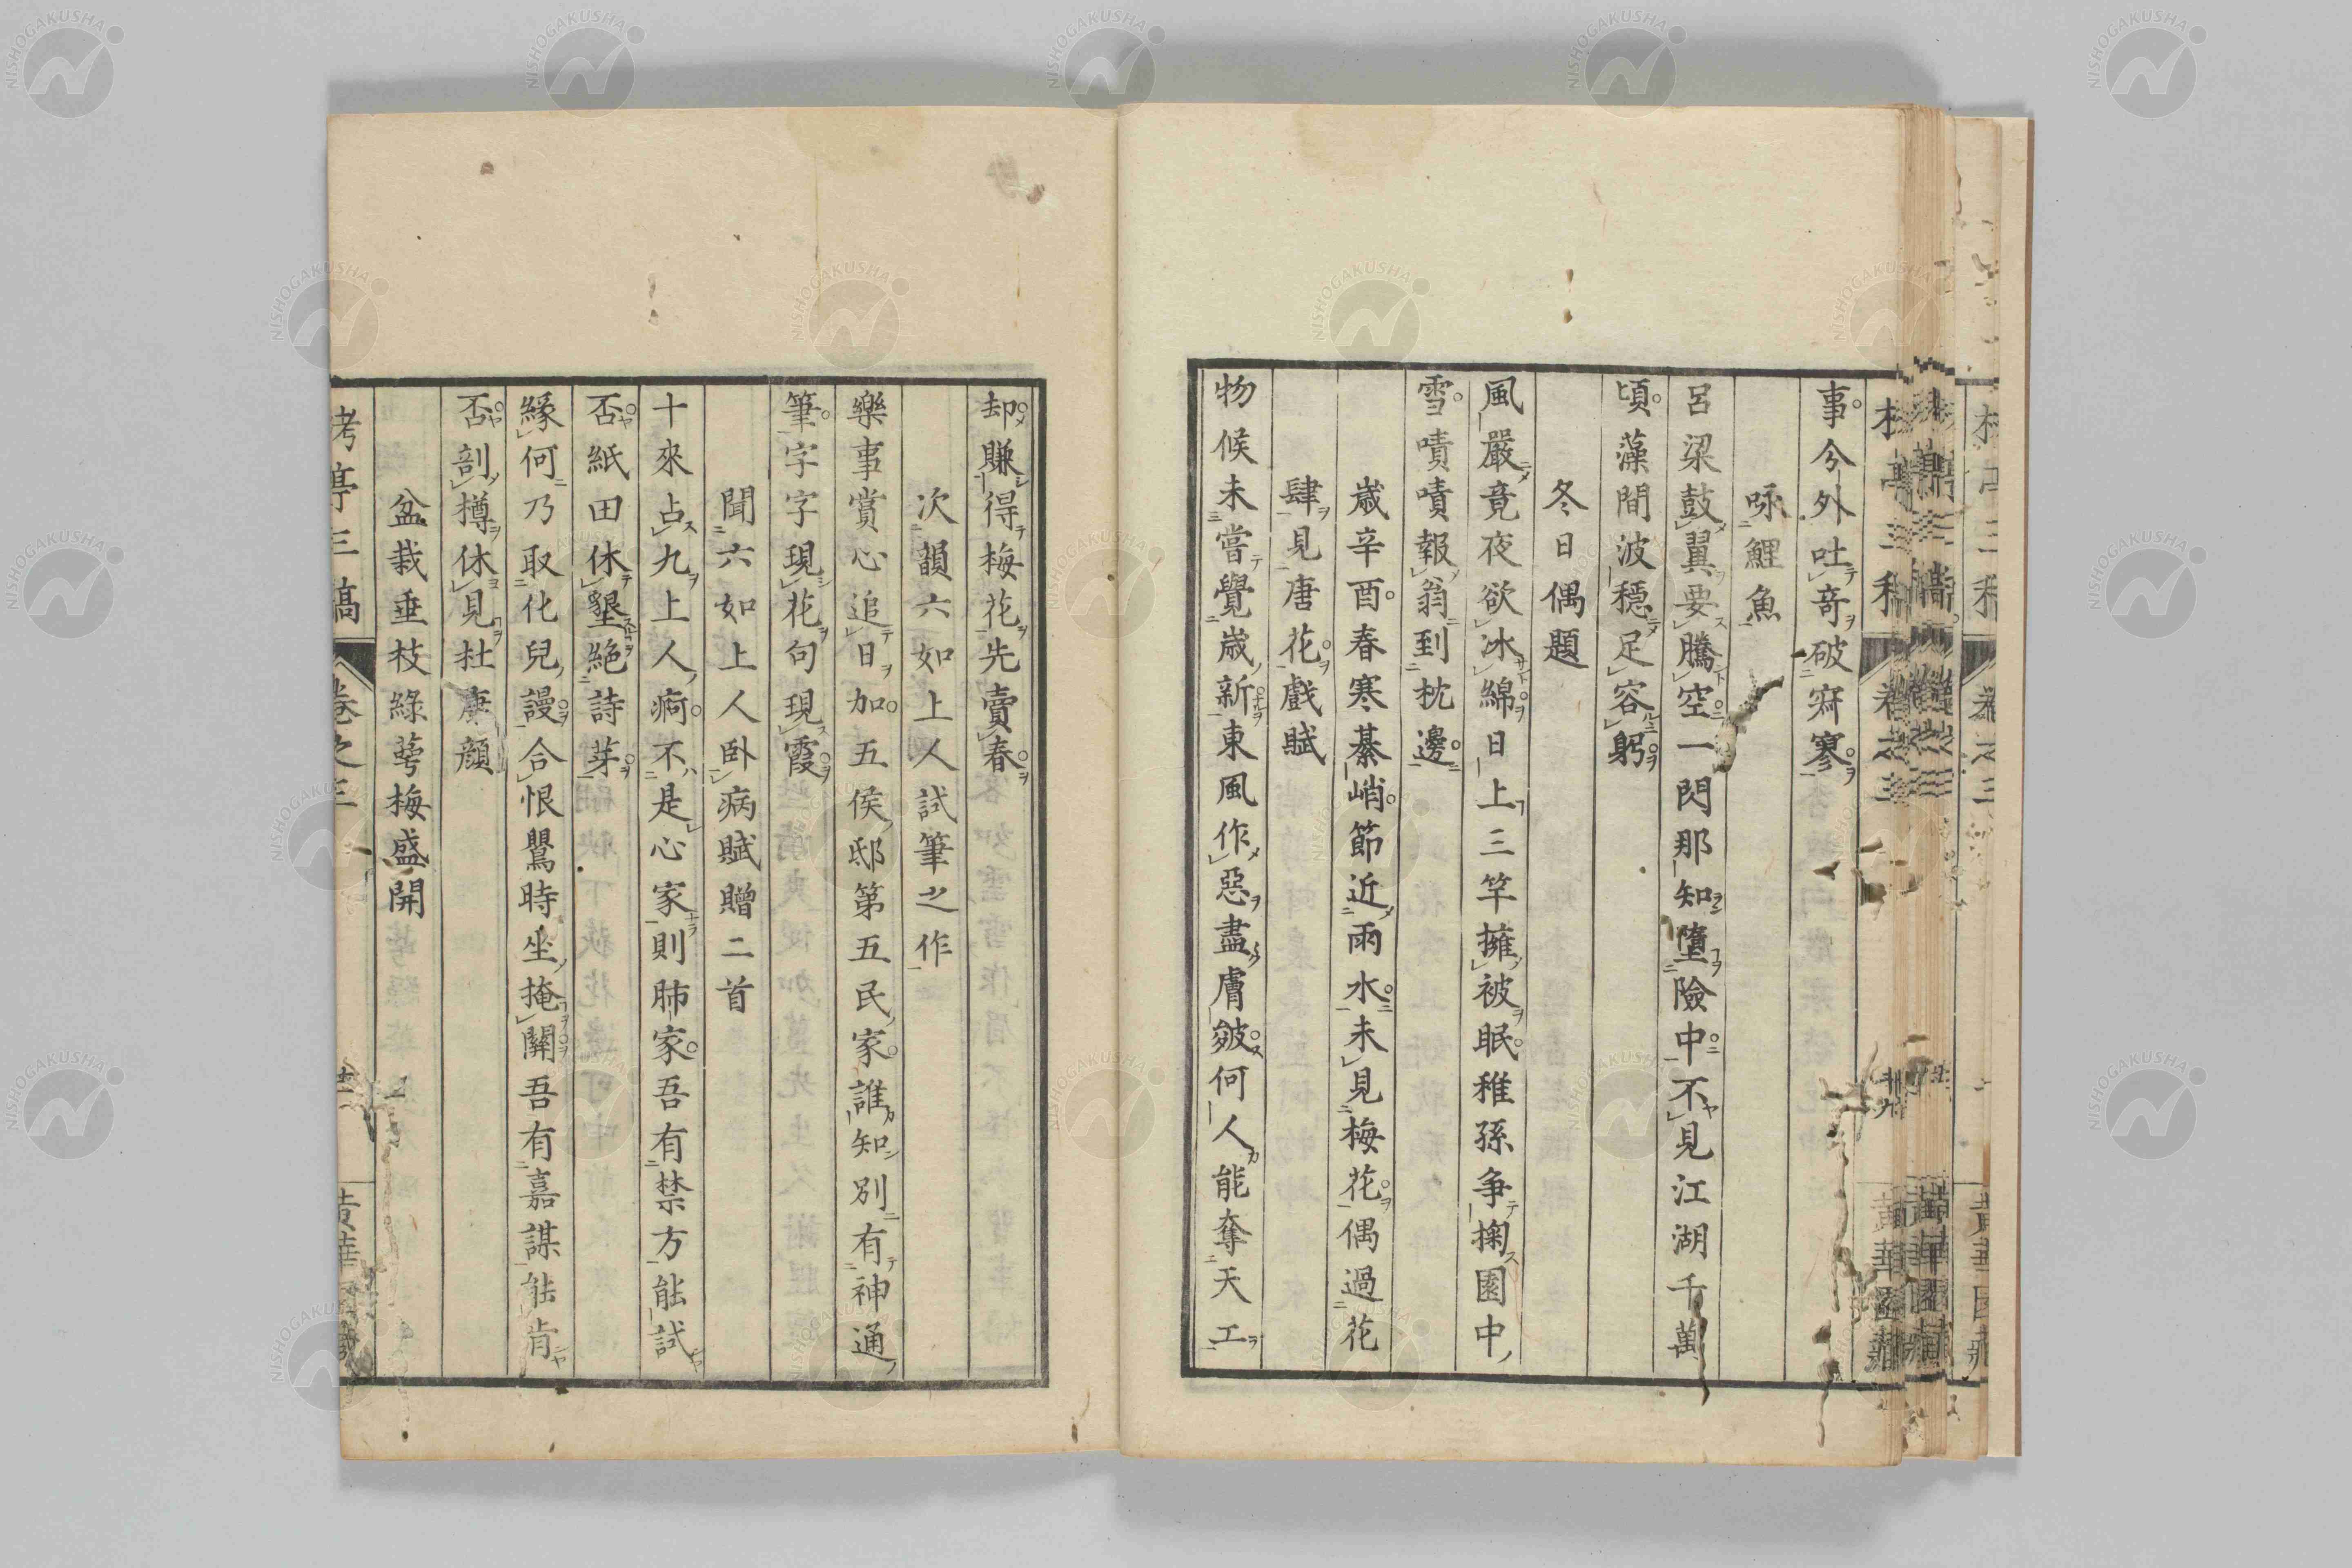 事今外吐奇破寂寥
咏鯉魚
呂梁鼓翼要騰空一閃那知墮險中不見江湖千萬
頃藻間波穩足容躬
冬日偶題
風嚴竟夜欲冰綿日上三竿擁被眠稚孫爭掬園中
雪嘖嘖報翁到枕邊
歲辛酉春寒綦峭節近雨水未見梅花偶過花
肆見唐花戲賦
物候未嘗覺歲新東風作惡盡膚皴何人能奪天工
却賺得梅花先賣春
次韻六如上人試筆之作
樂事賞心追日加五侯邸第五民家誰知別有神通
筆字字現花句現霞
聞六如上人臥病賦贈二首
十來占九上人痾不是心家則肺家吾有禁方能試
否紙田休墾絕詩芽
緣何乃取化兒謾合恨鷖時坐掩關吾有嘉謀能肯
否剖樽休見杜康顏
盆栽垂枝綠萼梅盛開
栲亭三稿 卷之三